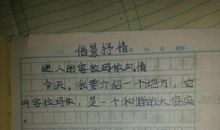 借景抒情
年 月 日 星期
迷人的客拉玛依风情
今天,我要介绍一个地方,它
叫客拉玛依,是一个和谐的大家庭